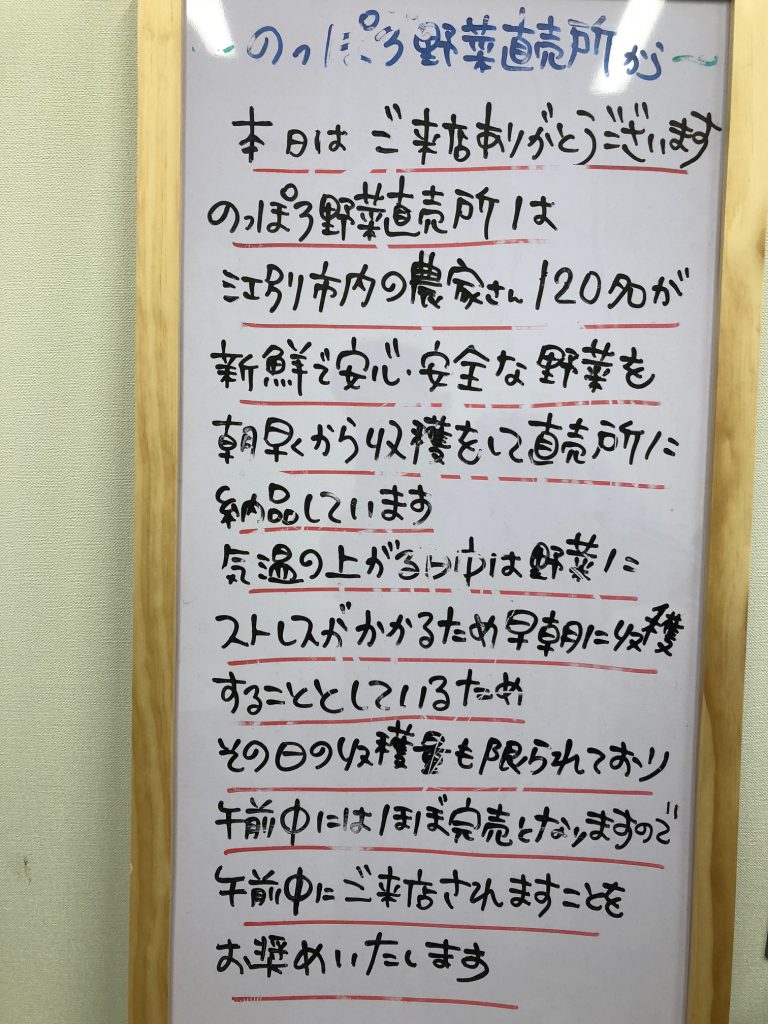 ~のっぽろ野菜直売所から~
本日は ご来店ありがとうございます
のっぽろ野菜直売所は
江別市内の農家さん120名が
新鮮で安心・安全な野菜を
朝早くから収穫をして直売所に
納品しています
気温の上がる日中は野菜に
ストレスがかかるため早朝に収穫
することとしているため
その日の収穫量も限られており
午前中にはほぼ完売となりますので
午前中にご来店されますことを
お奨めいたします